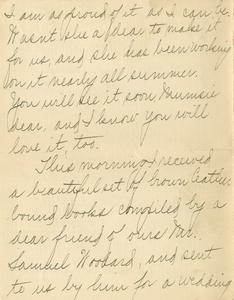 I am as proud of it as I can be.
Wasn't she a dear to make it
for us, and she has been working
on it nearly all summer.
You will see it soon, Mumsie
dear, and I know you will
love it, too.
This morning I received
a beautiful set of brown leather
bound books compiled by a
dear friend of ours Mr.
Samuel Woodard, and sent
to us by him for a wedding